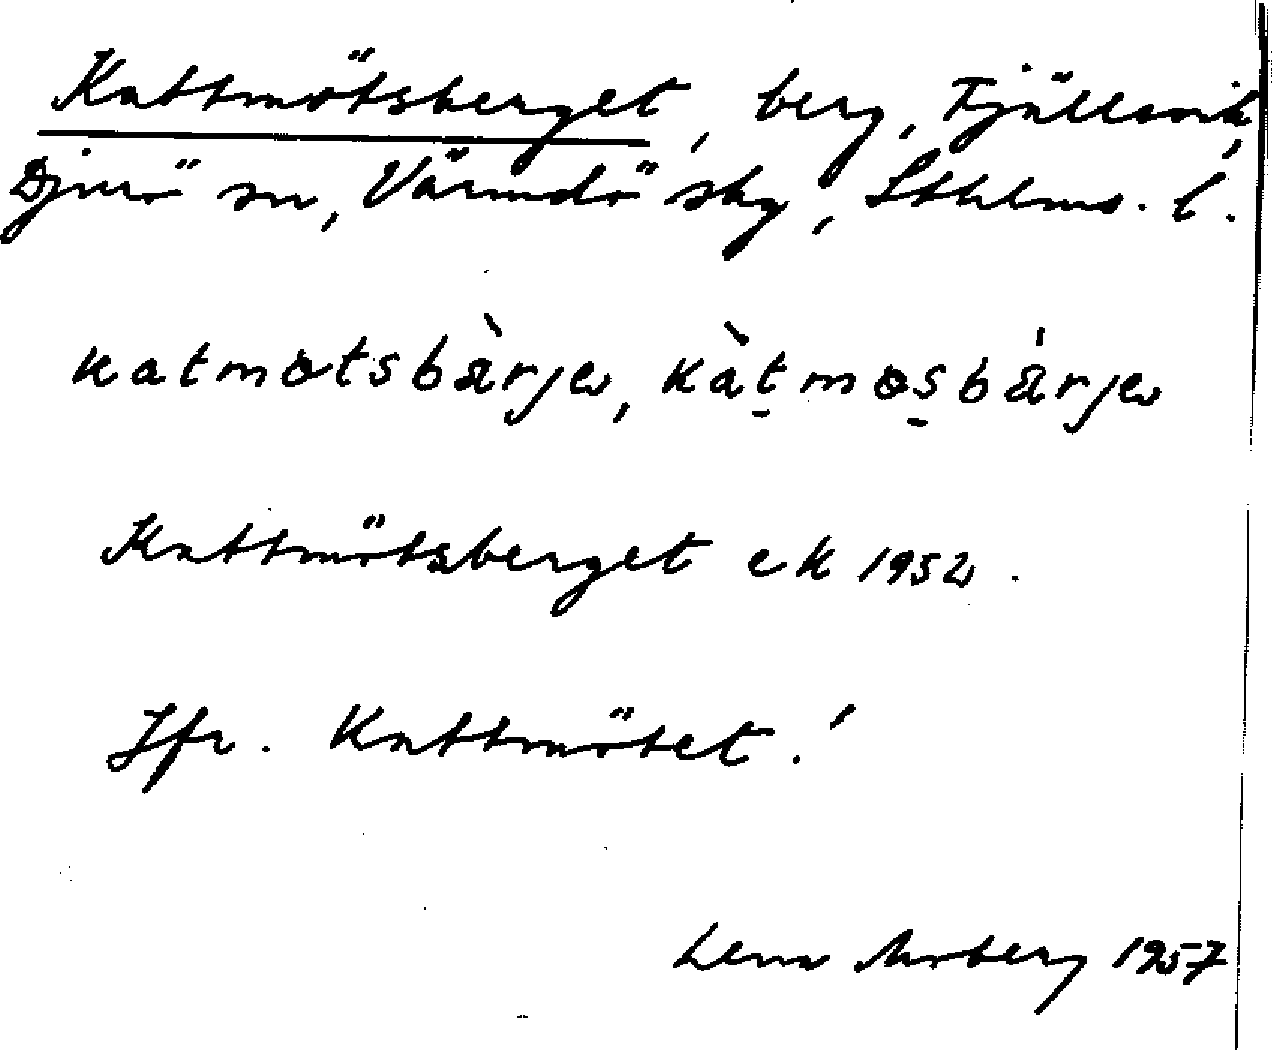 Kattmötsberget, berg, Fjällsvik,
Djurö sn, Värmdö skg, Sthlms. l.
katmotsbàrje, kàtmosbárje
Kattmötsberget ek 1952.
Jfr. Kattmötet!
Lena Moberg 1957